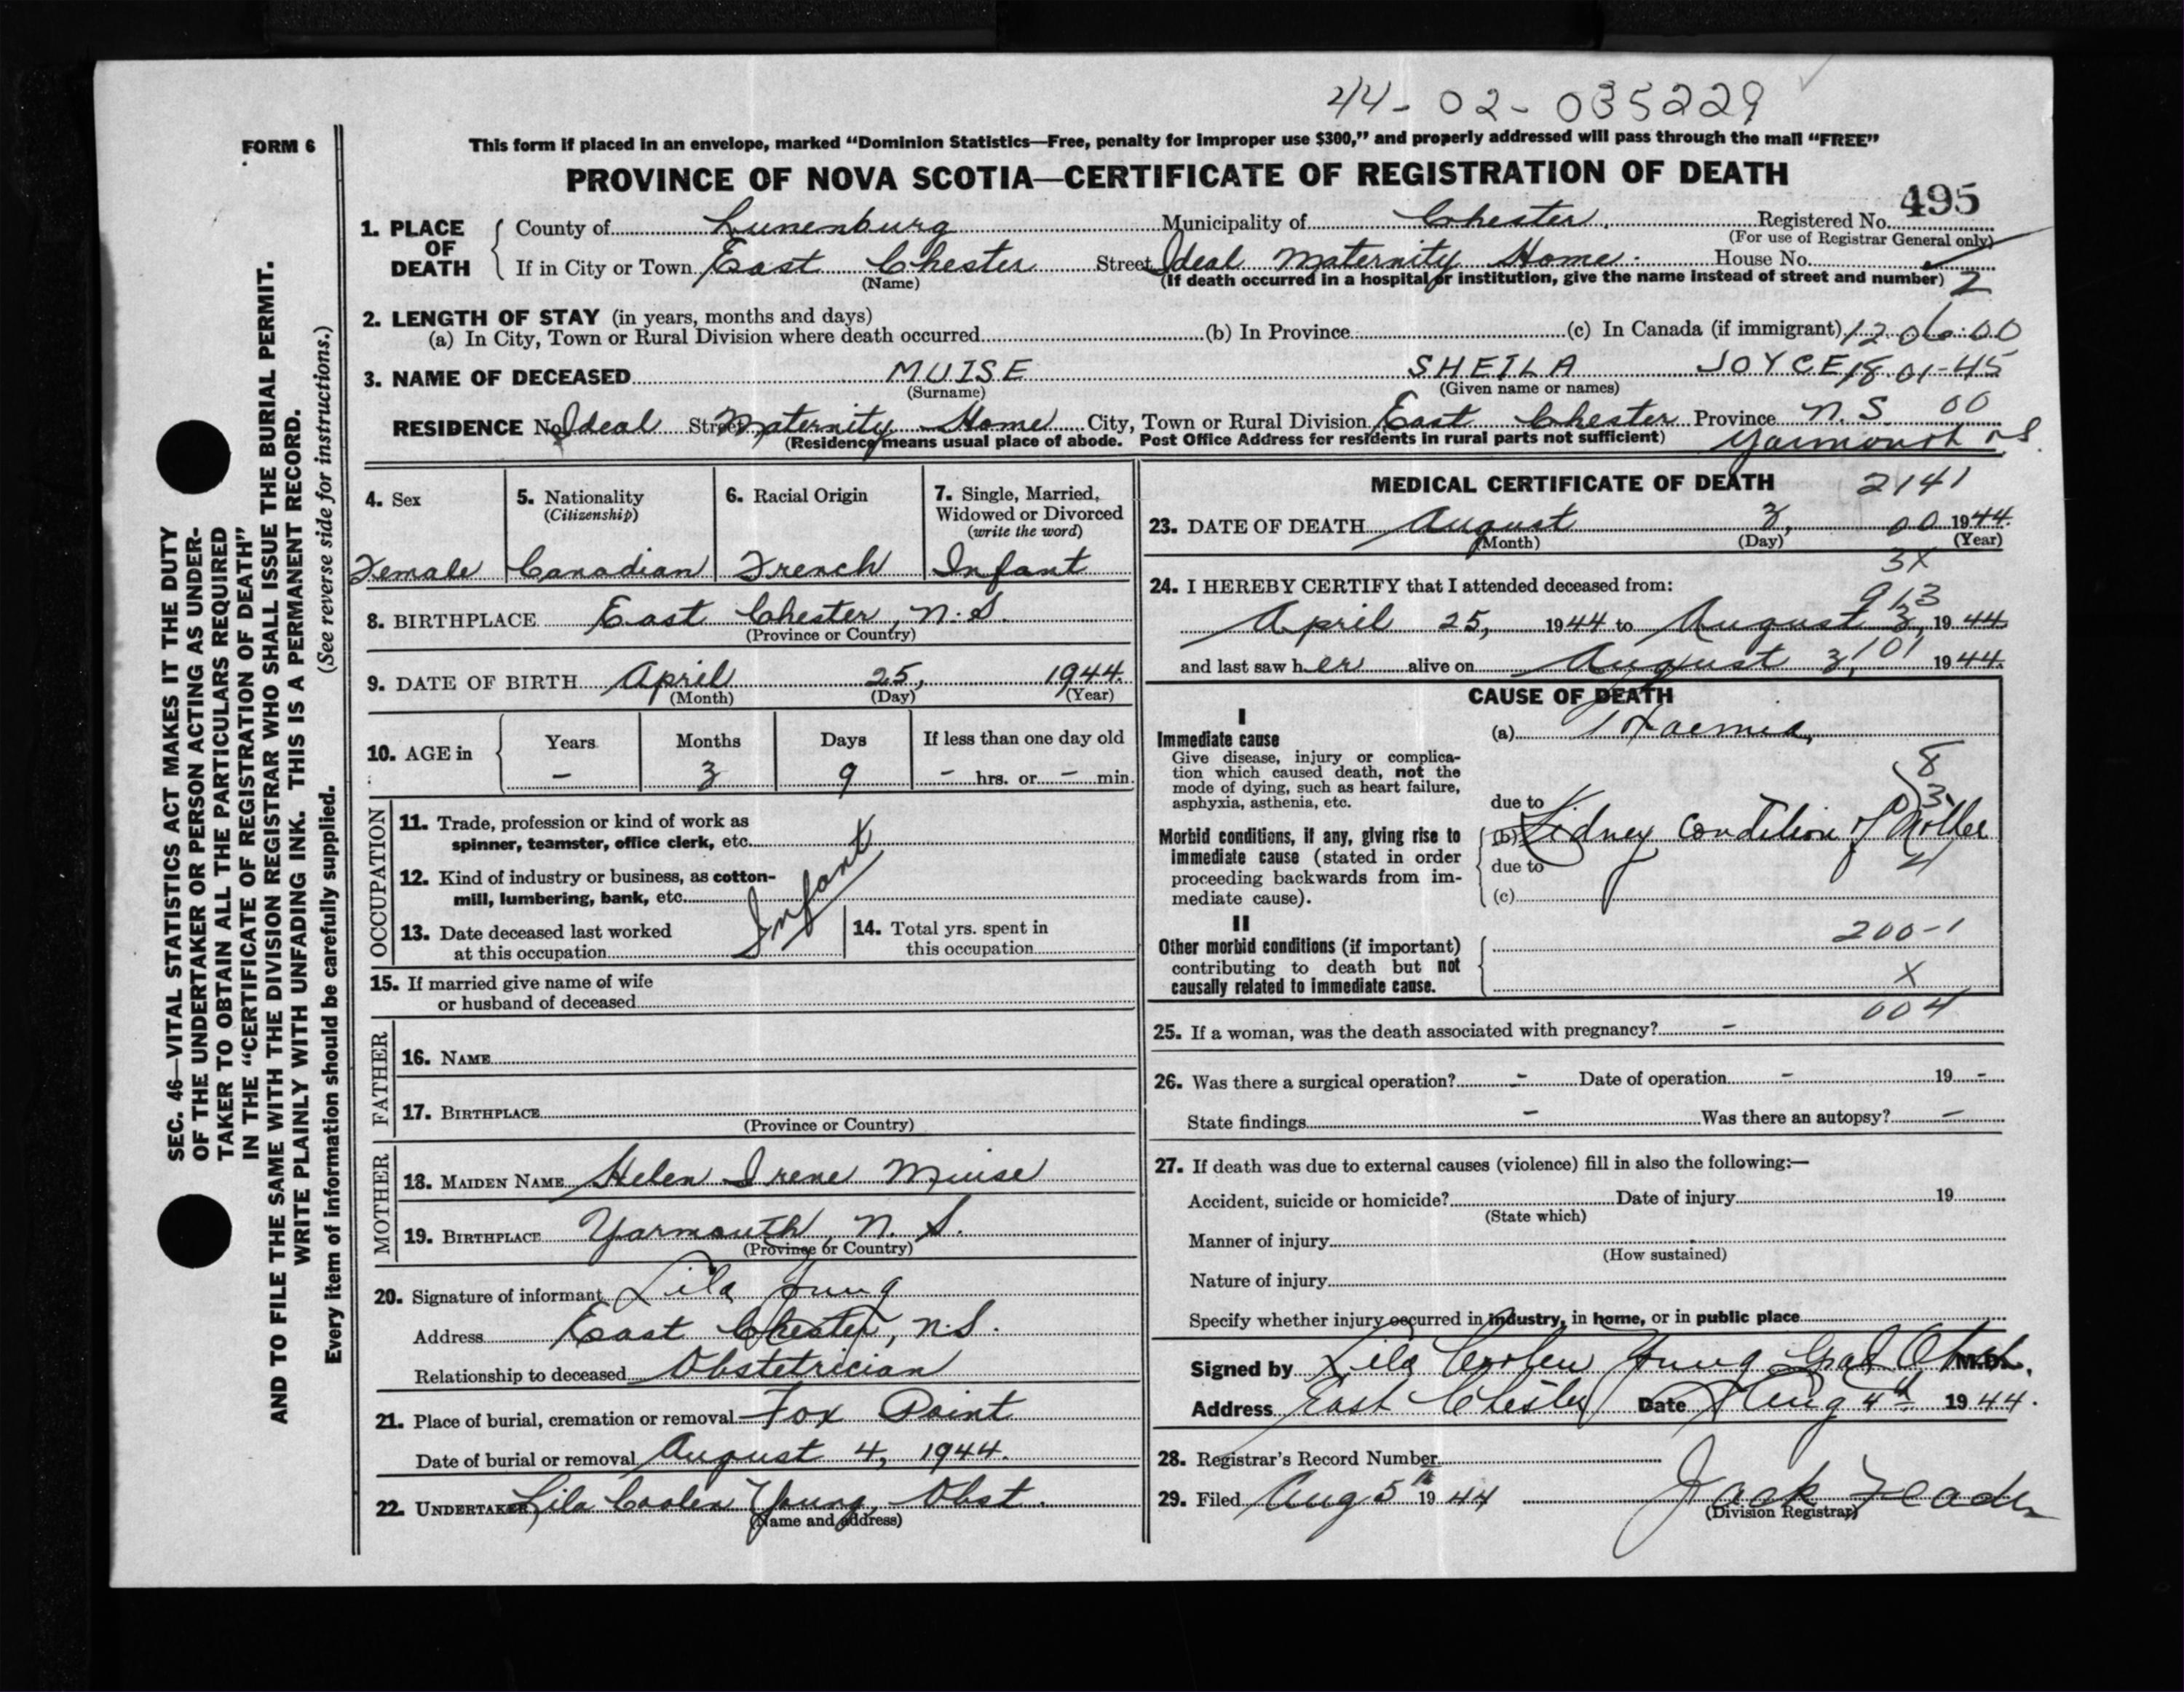 44-02-035229
FORM 6
This form if placed in an envelope, marked "Dominion Statistics—Free, penalty for improper use $300," and properly addressed will pass through the mail "FREE"
PROVINCE OF NOVA SCOTIA—CERTIFICATE OF REGISTRATION OF DEATH
495
1. PLACE OF DEATH
County of Lunenburg Municipality of Chester Registered No.
(For use of Registrar General only)
If in City or Town East Chester Street Ideal Maternity Home. House No.
(Name) (If death occurred in a hospital or institution, give the name instead of street and number) 2
2. LENGTH OF STAY (in years, months and days)
(a) In City, Town or Rural Division where death occurred (b) In Province (c) In Canada (if immigrant) 12 06:00
3. NAME OF DECEASED MUISE SHEILA JOYCE 18-01-45
(Surname) (Given name or names)
RESIDENCE No. Ideal Street Maternity Home City, Town or Rural Division East Chester Province N.S. 00
(Residence means usual place of abode. Post Office Address for residents in rural parts not sufficient) Yarmouth N.S.
4. Sex
Female
5. Nationality
(Citizenship)
Canadian
6. Racial Origin
French
7. Single, Married, Widowed or Divorced
(write the word)
Infant
8. BIRTHPLACE East Chester, N.S.
(Province or Country)
9. DATE OF BIRTH April 25, 1944.
(Month) (Day) (Year)
10. AGE in
Years Months Days If less than one day old
– 3 9 – hrs. or – min.
OCCUPATION
11. Trade, profession or kind of work as
spinner, teamster, office clerk, etc.
12. Kind of industry or business, as cotton-
mill, lumbering, bank, etc.
Infant
13. Date deceased last worked
at this occupation
14. Total yrs. spent in
this occupation
15. If married give name of wife
or husband of deceased
FATHER
16. NAME
17. BIRTHPLACE
(Province or Country)
MOTHER
18. MAIDEN NAME Helen Irene Muise
19. BIRTHPLACE Yarmouth, N. S.
(Province or Country)
20. Signature of informant Lila Young
Address East Chester, N.S.
Relationship to deceased Obstetrician
21. Place of burial, cremation or removal Fox Point
Date of burial or removal August 4, 1944.
22. UNDERTAKER Lila Coolen Young, Obst.
(Name and address)
MEDICAL CERTIFICATE OF DEATH 2141
23. DATE OF DEATH August 3, 00 1944.
(Month) (Day) (Year)
3X
24. I HEREBY CERTIFY that I attended deceased from:
913
April 25, 1944 to August 3, 1944
and last saw her alive on August 3, 101 1944.
CAUSE OF DEATH
I
Immediate cause
Give disease, injury or complica-
tion which caused death, not the
mode of dying, such as heart failure,
asphyxia, asthenia, etc.
(a) Toxaemia,
8
3
due to
Morbid conditions, if any, giving rise to
immediate cause (stated in order
proceeding backwards from im-
mediate cause).
(b) Kidney condition of Mother
due to 4
(c)
II
Other morbid conditions (if important)
contributing to death but not
causally related to immediate cause.
200-1
X
004
25. If a woman, was the death associated with pregnancy? –
26. Was there a surgical operation? – Date of operation – 19 –
State findings – Was there an autopsy? –
27. If death was due to external causes (violence) fill in also the following:—
Accident, suicide or homicide? Date of injury 19
(State which)
Manner of injury
(How sustained)
Nature of injury
Specify whether injury occurred in industry, in home, or in public place
Signed by Lila Coolen Young Grad Obst. M.D.
Address East Chester Date Aug 4th 1944.
28. Registrar's Record Number
29. Filed Aug 5th 1944 Jack
(Division Registrar)
SEC. 46—VITAL STATISTICS ACT MAKES IT THE DUTY
OF THE UNDERTAKER OR PERSON ACTING AS UNDER-
TAKER TO OBTAIN ALL THE PARTICULARS REQUIRED
IN THE "CERTIFICATE OF REGISTRATION OF DEATH"
AND TO FILE THE SAME WITH THE DIVISION REGISTRAR WHO SHALL ISSUE THE BURIAL PERMIT.
WRITE PLAINLY WITH UNFADING INK. THIS IS A PERMANENT RECORD.
Every item of information should be carefully supplied. (See reverse side for instructions.)